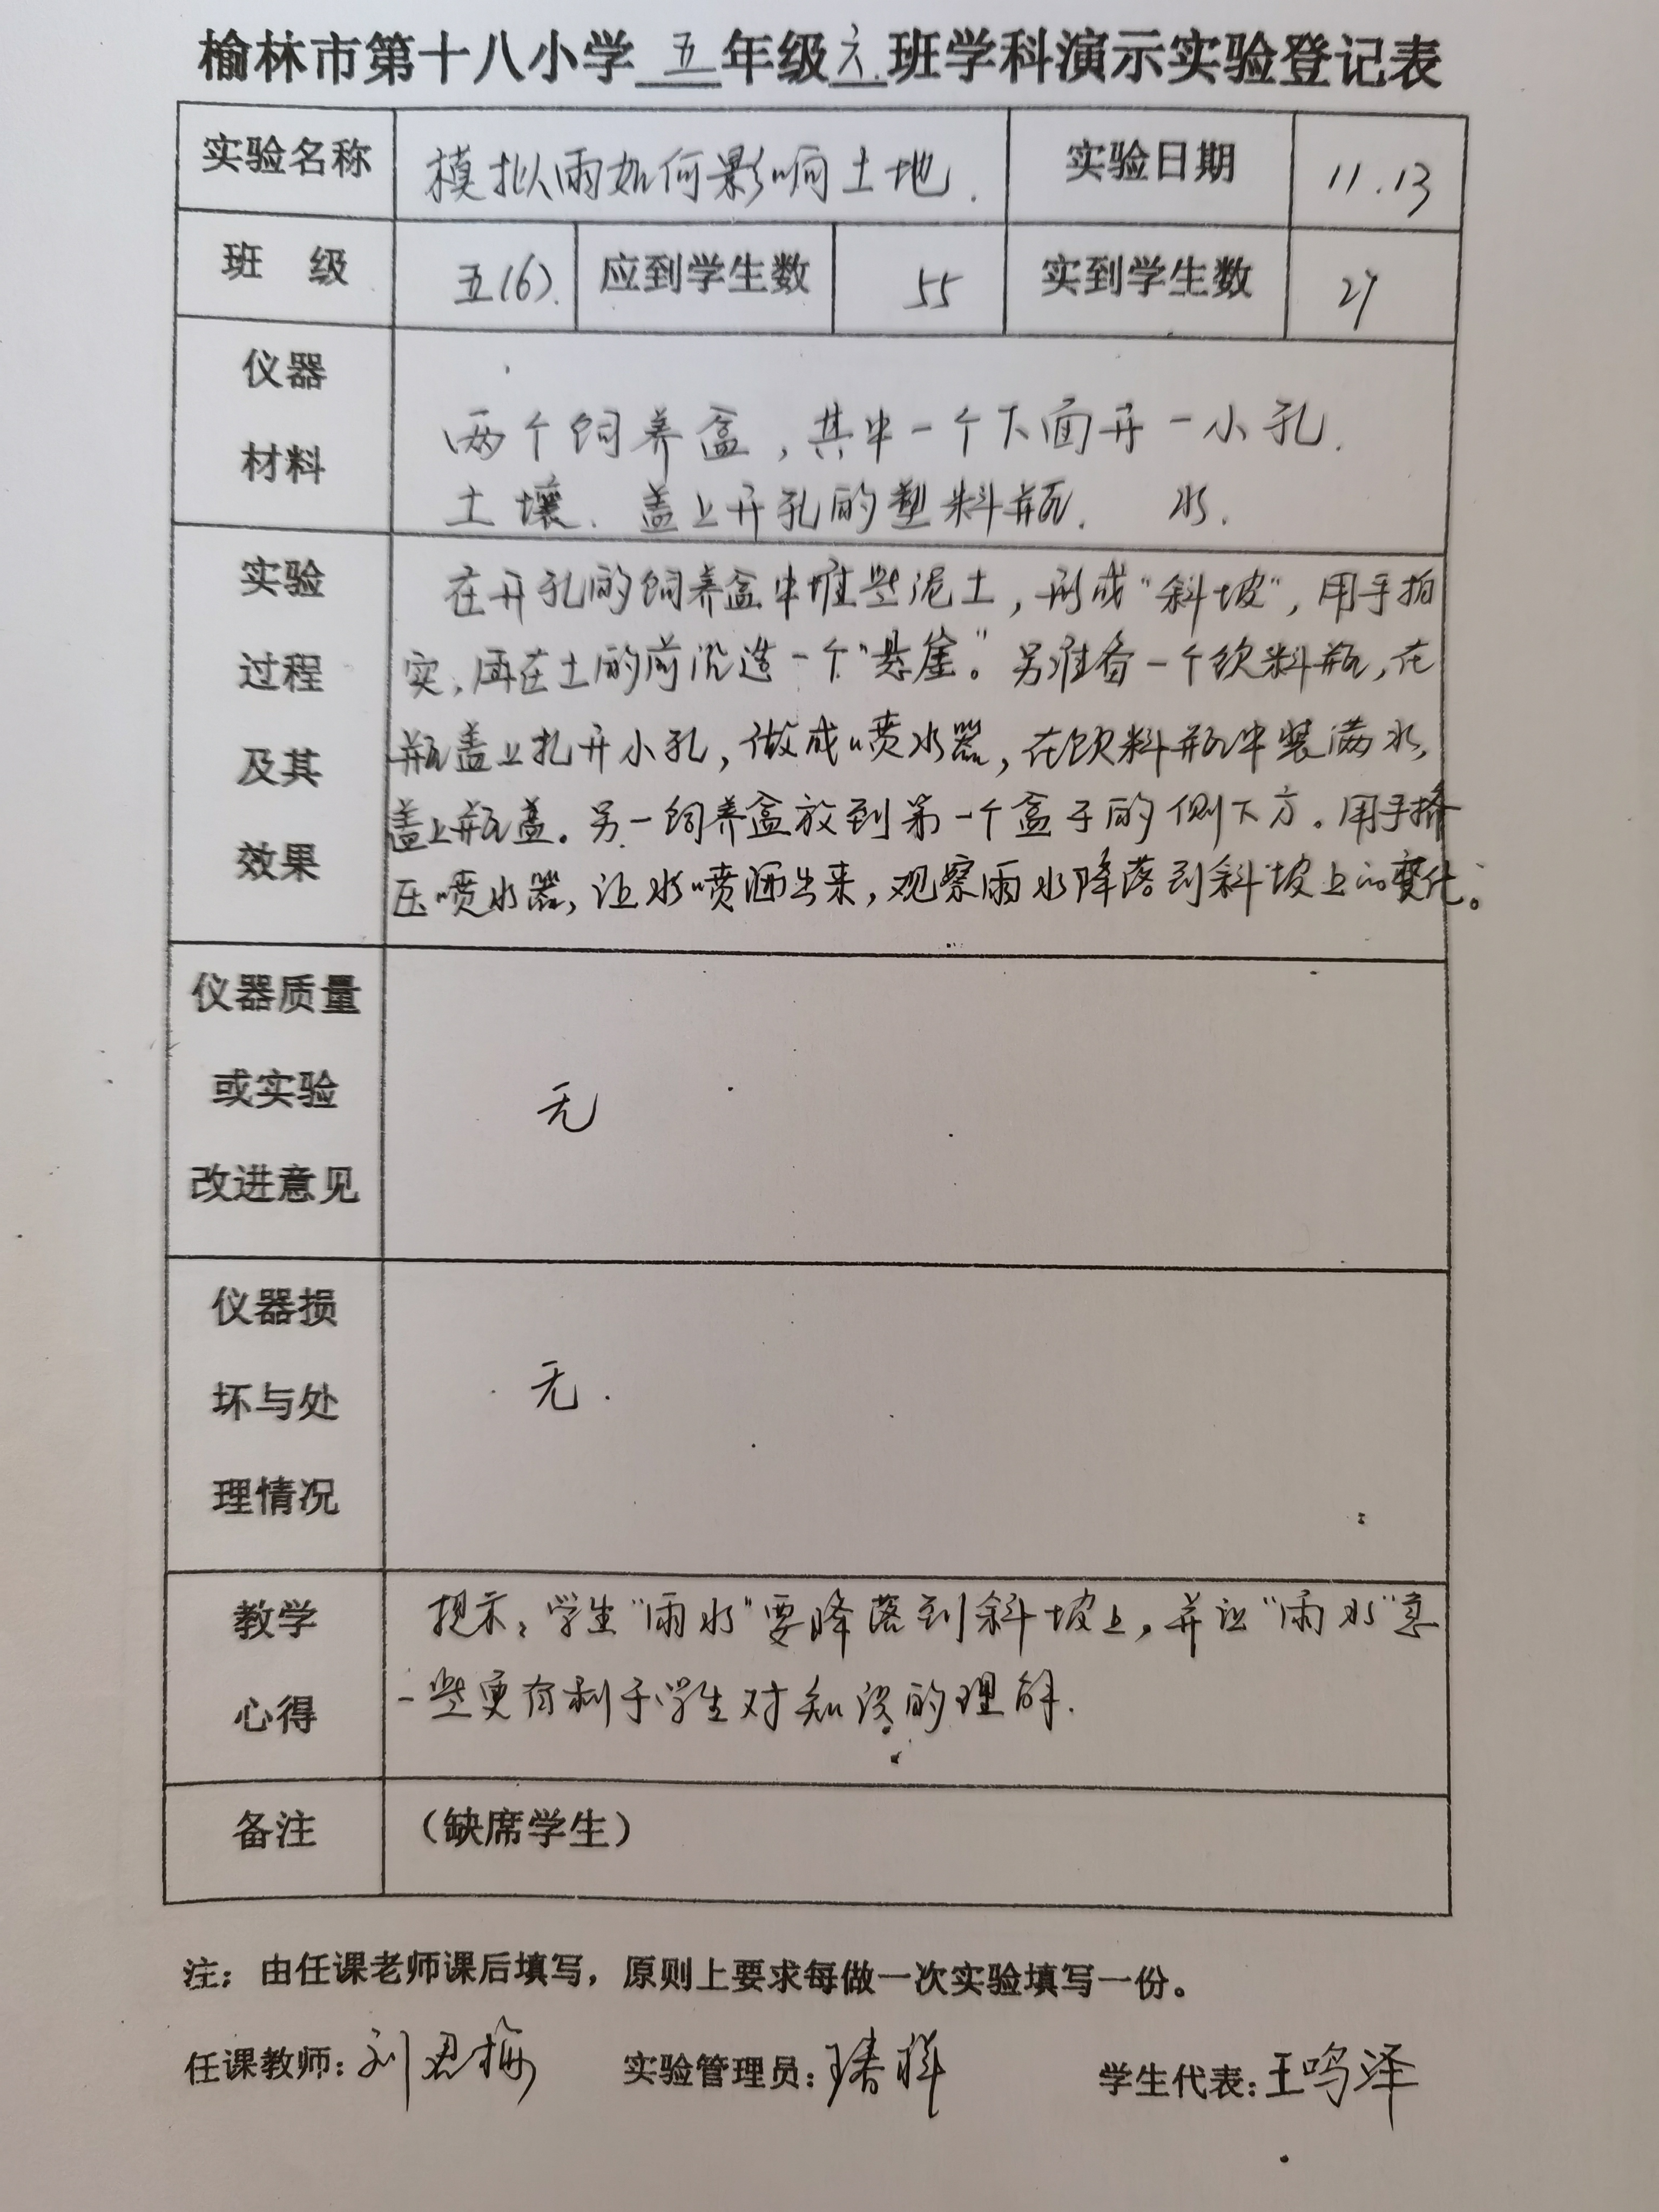 榆林市第十八小学 五 年级 六 班学科演示实验登记表
实验名称 模拟雨如何影响土地. 实验日期 11.13
班 级 五(6). 应到学生数 55 实到学生数
仪器
材料
两个饲养盒，其中一个下面开一小孔.
土壤. 盖上开孔的塑料瓶. 水.
实验
过程
及其
效果
在开孔的饲养盒中堆些泥土，形成“斜坡”，用手拍
实，再在土的前沿造一个“悬崖”。另准备一个饮料瓶，在
瓶盖上扎开小孔，做成喷水器，在饮料瓶中装满水，
盖上瓶盖。另一饲养盒放到第一个盒子的侧下方。用手挤
压喷水器，让水喷洒出来，观察雨水降落到斜坡上的变化。
仪器质量
或实验
改进意见
无
仪器损
坏与处
理情况
无.
教学
心得
提示：学生“雨水”要降落到斜坡上，并让“雨水”急
一些更有利于学生对知识的理解.
备注 （缺席学生）
注：由任课老师课后填写，原则上要求每做一次实验填写一份。
任课教师：刘君梅 实验管理员： 学生代表：王鸣泽